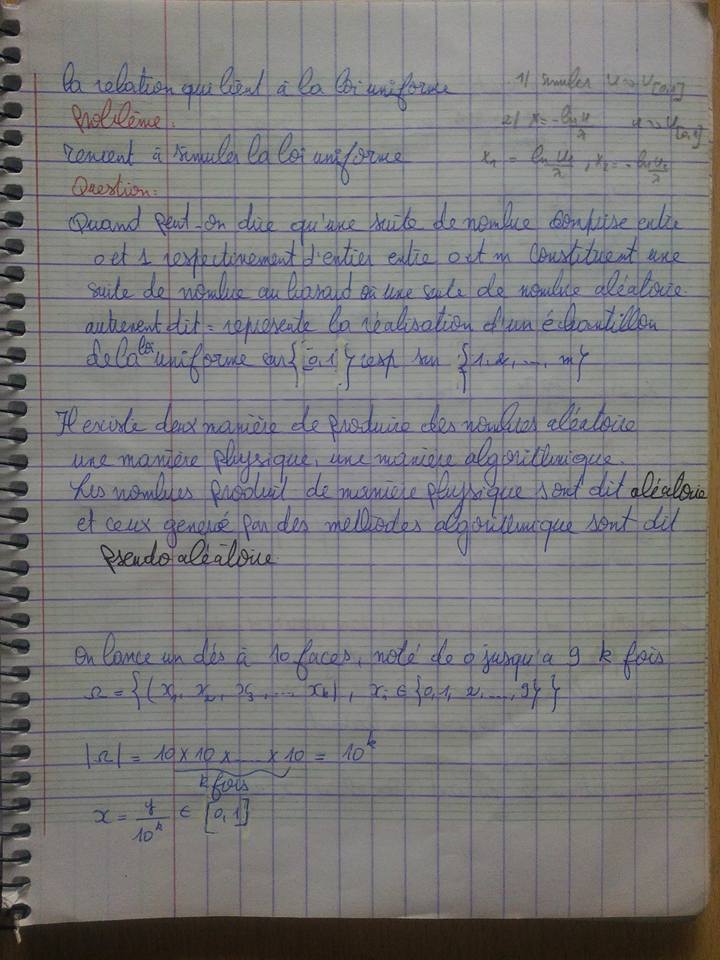 la relation qui lient à la loi uniforme
1/ simuler u ~> U[0,1]
Problème:
2/ x = -ln u/λ u ~> U[0,1]
revient à simuler la loi uniforme
x1 = - ln u1/λ , x2 = - ln u2/λ
Question:
Quand peut-on dire qu'une suite de nombre comprise entre
0 et 1 respectivement d'entier entre 0 et m constituent une
suite de nombre au hasard ou une suite de nombre aléatoire.
autrement dit = represente la réalisation d'un échantillon
de la loi uniforme sur {[0,1]} resp sur {1, 2, ..., m}
Il existe deux manière de produire des nombres aléatoire
une manière physique, une manière algorithmique.
Les nombres produit de manière physique sont dit aléatoire
et ceux generé par des methodes algorithmique sont dit
pseudo aléatoire
On lance un dés à 10 faces, noté de 0 jusqu'a 9 k fois
Ω = {(x1, x2, x3, ... xk), xi ∈ {0, 1, 2, ..., 9}}
|Ω| = 10 x 10 x ... x 10 = 10^k
k fois
x = y/10^k ∈ [0, 1]